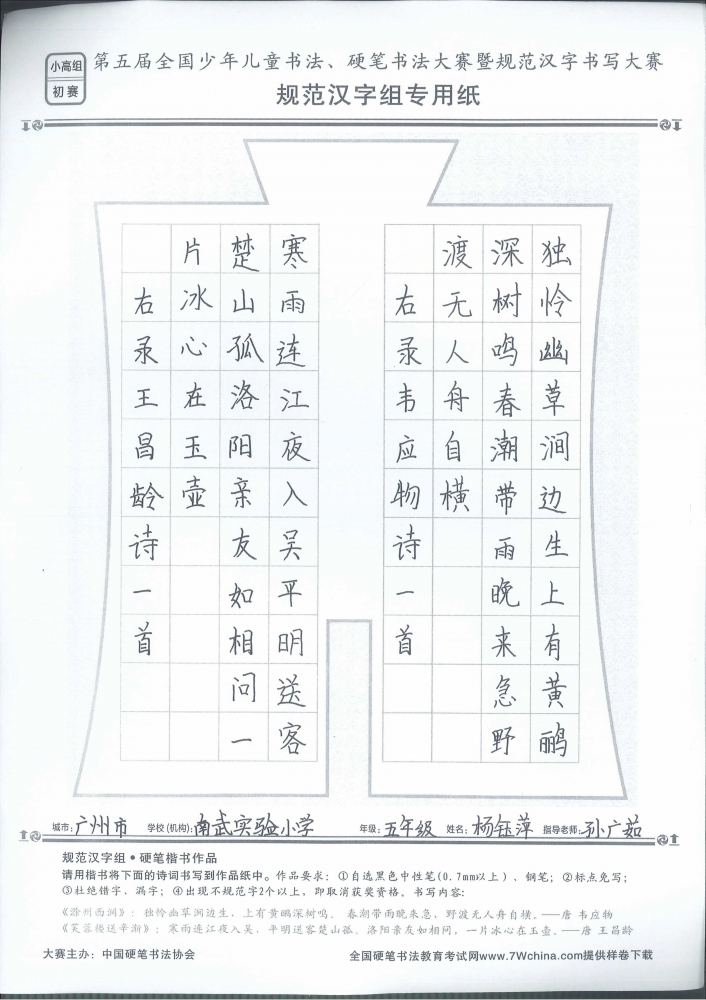 小高组
初赛
第五届全国少年儿童书法、硬笔书法大赛暨规范汉字书写大赛
规范汉字组专用纸
独怜幽草涧边生上有黄鹂
深树鸣春潮带雨晚来急野
渡无人舟自横
右录韦应物诗一首
寒雨连江夜入吴平明送客
楚山孤洛阳亲友如相问一
片冰心在玉壶
右录王昌龄诗一首
城市：广州市 学校(机构)：南武实验小学 年级：五年级 姓名：杨钰萍 指导老师：孙广茹
规范汉字组•硬笔楷书作品
请用楷书将下面的诗词书写到作品纸中。作品要求：①自选黑色中性笔(0.7mm以上)、钢笔；②标点免写；
③杜绝错字、漏字；④出现不规范字2个以上，即取消获奖资格。书写内容：
《滁州西涧》：独怜幽草涧边生，上有黄鹂深树鸣。 春潮带雨晚来急，野渡无人舟自横。——唐 韦应物
《芙蓉楼送辛渐》：寒雨连江夜入吴，平明送客楚山孤。洛阳亲友如相问，一片冰心在玉壶。——唐 王昌龄
大赛主办：中国硬笔书法协会 全国硬笔书法教育考试网www.7Wchina.com提供样卷下载